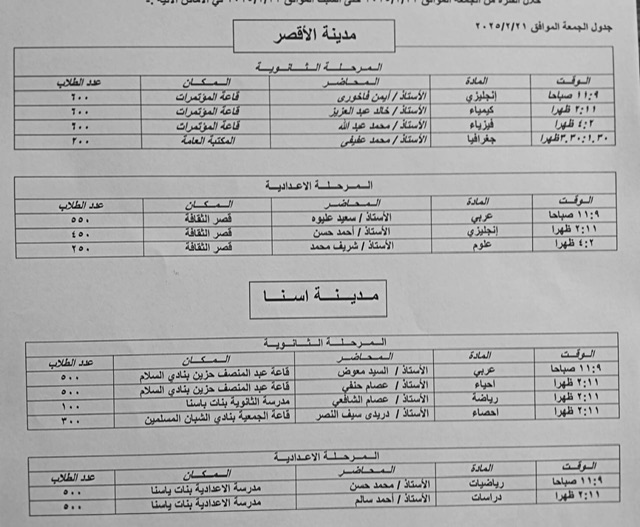 جدول الجمعة الموافق ٢٠٢٥/٢/٢١
مدينة الأقصر
المرحلة الثانوية
الوقت المادة المحاضر المكان عدد الطلاب
١١:٩ صباحا إنجليزي الأستاذ / أيمن فاخورى قاعة المؤتمرات ٦٠٠
٢:١١ ظهرا كيمياء الأستاذ / خالد عبد العزيز قاعة المؤتمرات ٦٠٠
٤:٢ ظهرا فيزياء الأستاذ / محمد عبد الله قاعة المؤتمرات ٦٠٠
٣.٣٠:١.٣٠ ظهرا جغرافيا الأستاذ / محمد عفيفى المكتبة العامة ٢٠٠
المرحلة الاعدادية
الوقت المادة المحاضر المكان عدد الطلاب
١١:٩ صباحا عربي الأستاذ / سعيد عليوه قصر الثقافة ٥٥٠
٢:١١ ظهرا إنجليزي الأستاذ / أحمد حسن قصر الثقافة ٤٥٠
٤:٢ ظهرا علوم الأستاذ / شريف محمد قصر الثقافة ٢٥٠
مدينة اسنا
المرحلة الثانوية
الوقت المادة المحاضر المكان عدد الطلاب
١١:٩ صباحا عربي الأستاذ / السيد معوض قاعة عبد المنصف حزين بنادي السلام ٥٠٠
٢:١١ ظهرا احياء الأستاذ / عصام حنفي قاعة عبد المنصف حزين بنادي السلام ٥٠٠
٢:١١ ظهرا رياضة الأستاذ / عصام الشافعي مدرسة الثانوية بنات باسنا ١٠٠
٢:١١ ظهرا احصاء الأستاذ / دريدى سيف النصر قاعة الجمعية بنادي الشبان المسلمين ٣٠٠
المرحلة الاعدادية
الوقت المادة المحاضر المكان عدد الطلاب
١١:٩ صباحا رياضيات الأستاذ / محمد حسن مدرسة الاعدادية بنات باسنا ٥٠٠
٢:١١ ظهرا دراسات الأستاذ / أحمد سالم مدرسة الاعدادية بنات باسنا ٥٠٠